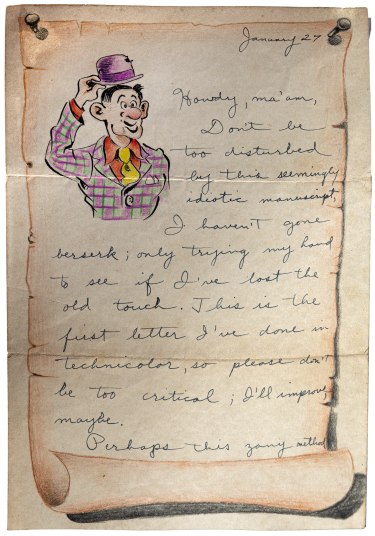 January 27
Howdy, ma'am,
Don't be
too disturbed
by this seemingly
idiotic manuscript,
I haven't gone
berserk; only trying my hand
to see if I've lost the
old touch. This is the
first letter I've done in
technicolor, so please don't
be too critical; I'll improve,
maybe.
Perhaps this zany method